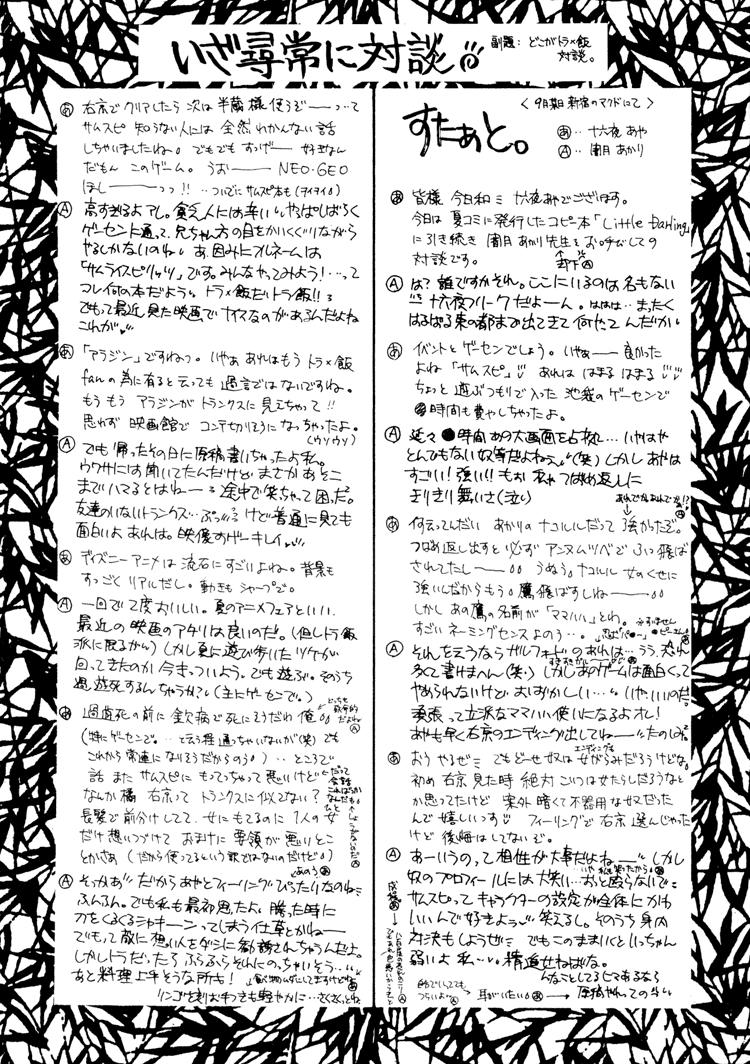 いざ尋常に対談!!
副題:どこがトラ×飯
対談。
<9月期 新宿のマクドにて>
すたぁと。
あ‥十六夜 あや
A‥闇月 あかり
あ 皆様 今日和ミ 十六夜あやでございます。
今日は 夏コミに発行したコピー本「Little Darling」
に引き続き 闇月 あかり先生を お呼びしての
対談です。
A は? 誰ですかそれ。ここにいるのは名もない
十六夜フリークだよーん。ははは‥まったく
はるばる東の都まで出てきて何やってんだか
あ イベントとゲーセンでしょう。いやぁー 良かった
よね「サムスピ」 あれは はまる はまる
ちょっと 遊ぶつもりで入った 池袋のゲーセンで
時間も費やしちゃったよ。
A 延々 時間 あの大画面を占拠…いやはや
とんでもない奴等だよねぇ(笑) しかし あやは
すごい!強い!! もぉ 私ゃ つばめ返しに
きりきり舞いさ(泣)
あ 何云ってんだい あかりの ナコルルだって 強かったぞ。
つばめ返し出すと 必ず アンヌムツベで ふっ飛ば
されてたしー うぬぅ ナコルル 女のくせに
強いんだからもう。鷹飛ばすしねー
しかし あの鷹の名前が「ママハハ」とわ。
すごい ネーミングセンスよのう…。
A それを云うなら ガルフォードのあれは…うぅ 恐れ
多くて書けませへん(笑) しかしあのゲームは面白くて
やめられないけど おはずかしい…
頑張って立派なママハハ使いになるよオレ!
あやも早く右京のエンディング出してねー たのしみ
あ おう やるぜミ でも どーせ 奴は 女がらみだろうけどな。
エンディングも
初め 右京 見た時 絶対 こいつは女たらしだろうなと
か思ってたけど 案外 暗くて 不器用な 奴だった
んで 嬉しいっす フィーリングで 右京 選んじゃった
けど 後悔はしてないぞ。
A あーいうのって相性が大事だよねー しかし
奴のプロフィールには大笑い…おっと 怒らないで
サムスピって キャラクターの設定が全体にかわ
いいんで好きよぅ 笑えるし。そのうち 身内
対決もしようぜミ でも このままいくといっちゃん
弱いよ 私…
精進せねばな。
耳がいたい
→原稿やれっての
あ 右京で クリアしたら 次は 半蔵様 使うぞーって
サムスピ 知らない人には 全然 わかんない 話
しちゃいましたね。でもでも すっげー 好きなん
だもん このゲーム。うおー NEO・GEO
ほしーっっ!! ‥ついでに サムスピ本も(ヲイヲイ)
A 高すぎるよアレ。貧乏人には辛い やっぱしばらく
ゲーセンに通って、兄ちゃん方の目をかいくぐりながら
やるしかないのね あ、因みにフルネームは
「サムライスピリッツ」です。みんなやってみよう!‥って
コレ何の本だよう。トラ×飯だトラ飯!!
でもって最近見た映画でナイスなのがあるんだよね
これが
あ 「アラジン」ですねっ。いやぁ あれはもう トラ×飯
fanの為に有ると云っても 過言ではないですね。
もう もう アラジンが トランクスに 見えちゃって!!
思わず 映画館で コンテ切りそうになっちゃったよ。
(ウソウソ)
A でも 帰ったその日に 原稿書いちゃったよ私。
ウワサには聞いてたんだけど まさか あそこ
までハマるとはねー 途中で笑っちゃって困った。
友達のいないトランクス…ぷっ けど普通に見ても
面白いよ あれは。映像すげーキレイ
あ ディズニーアニメは 流石に すごいよね。背景も
すっごく リアルだし。動きも シャープで。
A 一回で二度おいしい。夏のアニメフェアといい、
最近の映画のアタリは良いのだ。(但しトラ飯
派に限るから) しかし夏に遊び歩いたツケが
回ってきたのか 今きっついよう。でも遊ぶ。そのうち
過遊死するんちゃうか?(主にゲーセンで。)
あ 過遊死の前に 金欠病で死にそうだわ 俺
(特にゲーセンで。…と云う程 通っちゃいないが(笑) でも
これから 常連になりそうだからのう) ‥ところで
話 また サムスピに もってっちゃって 悪いけど
なんか 橘 右京って トランクスに似てない?
長髪で前分けしてて、女にもてるのに 1人の女
だけ想いつづけて おまけに 要領が 悪いとこ
とかさぁ(だから使ってるという訳ではないのだけど)
A そっかぁ だからあやとフィーリングぴったりなのね
ふんふん。でも私も最初思ったよ、勝った時に
刀をくるくるジャキーンってしまう仕草とかね
でもって敵に想い人をダシに勧誘されちゃうんだよ。
しかしトラだったら ふらふらそれにのっちゃいそう…
あと料理上手そうな所も!
リンゴをむく手つきも軽やかに…さくさくっとね